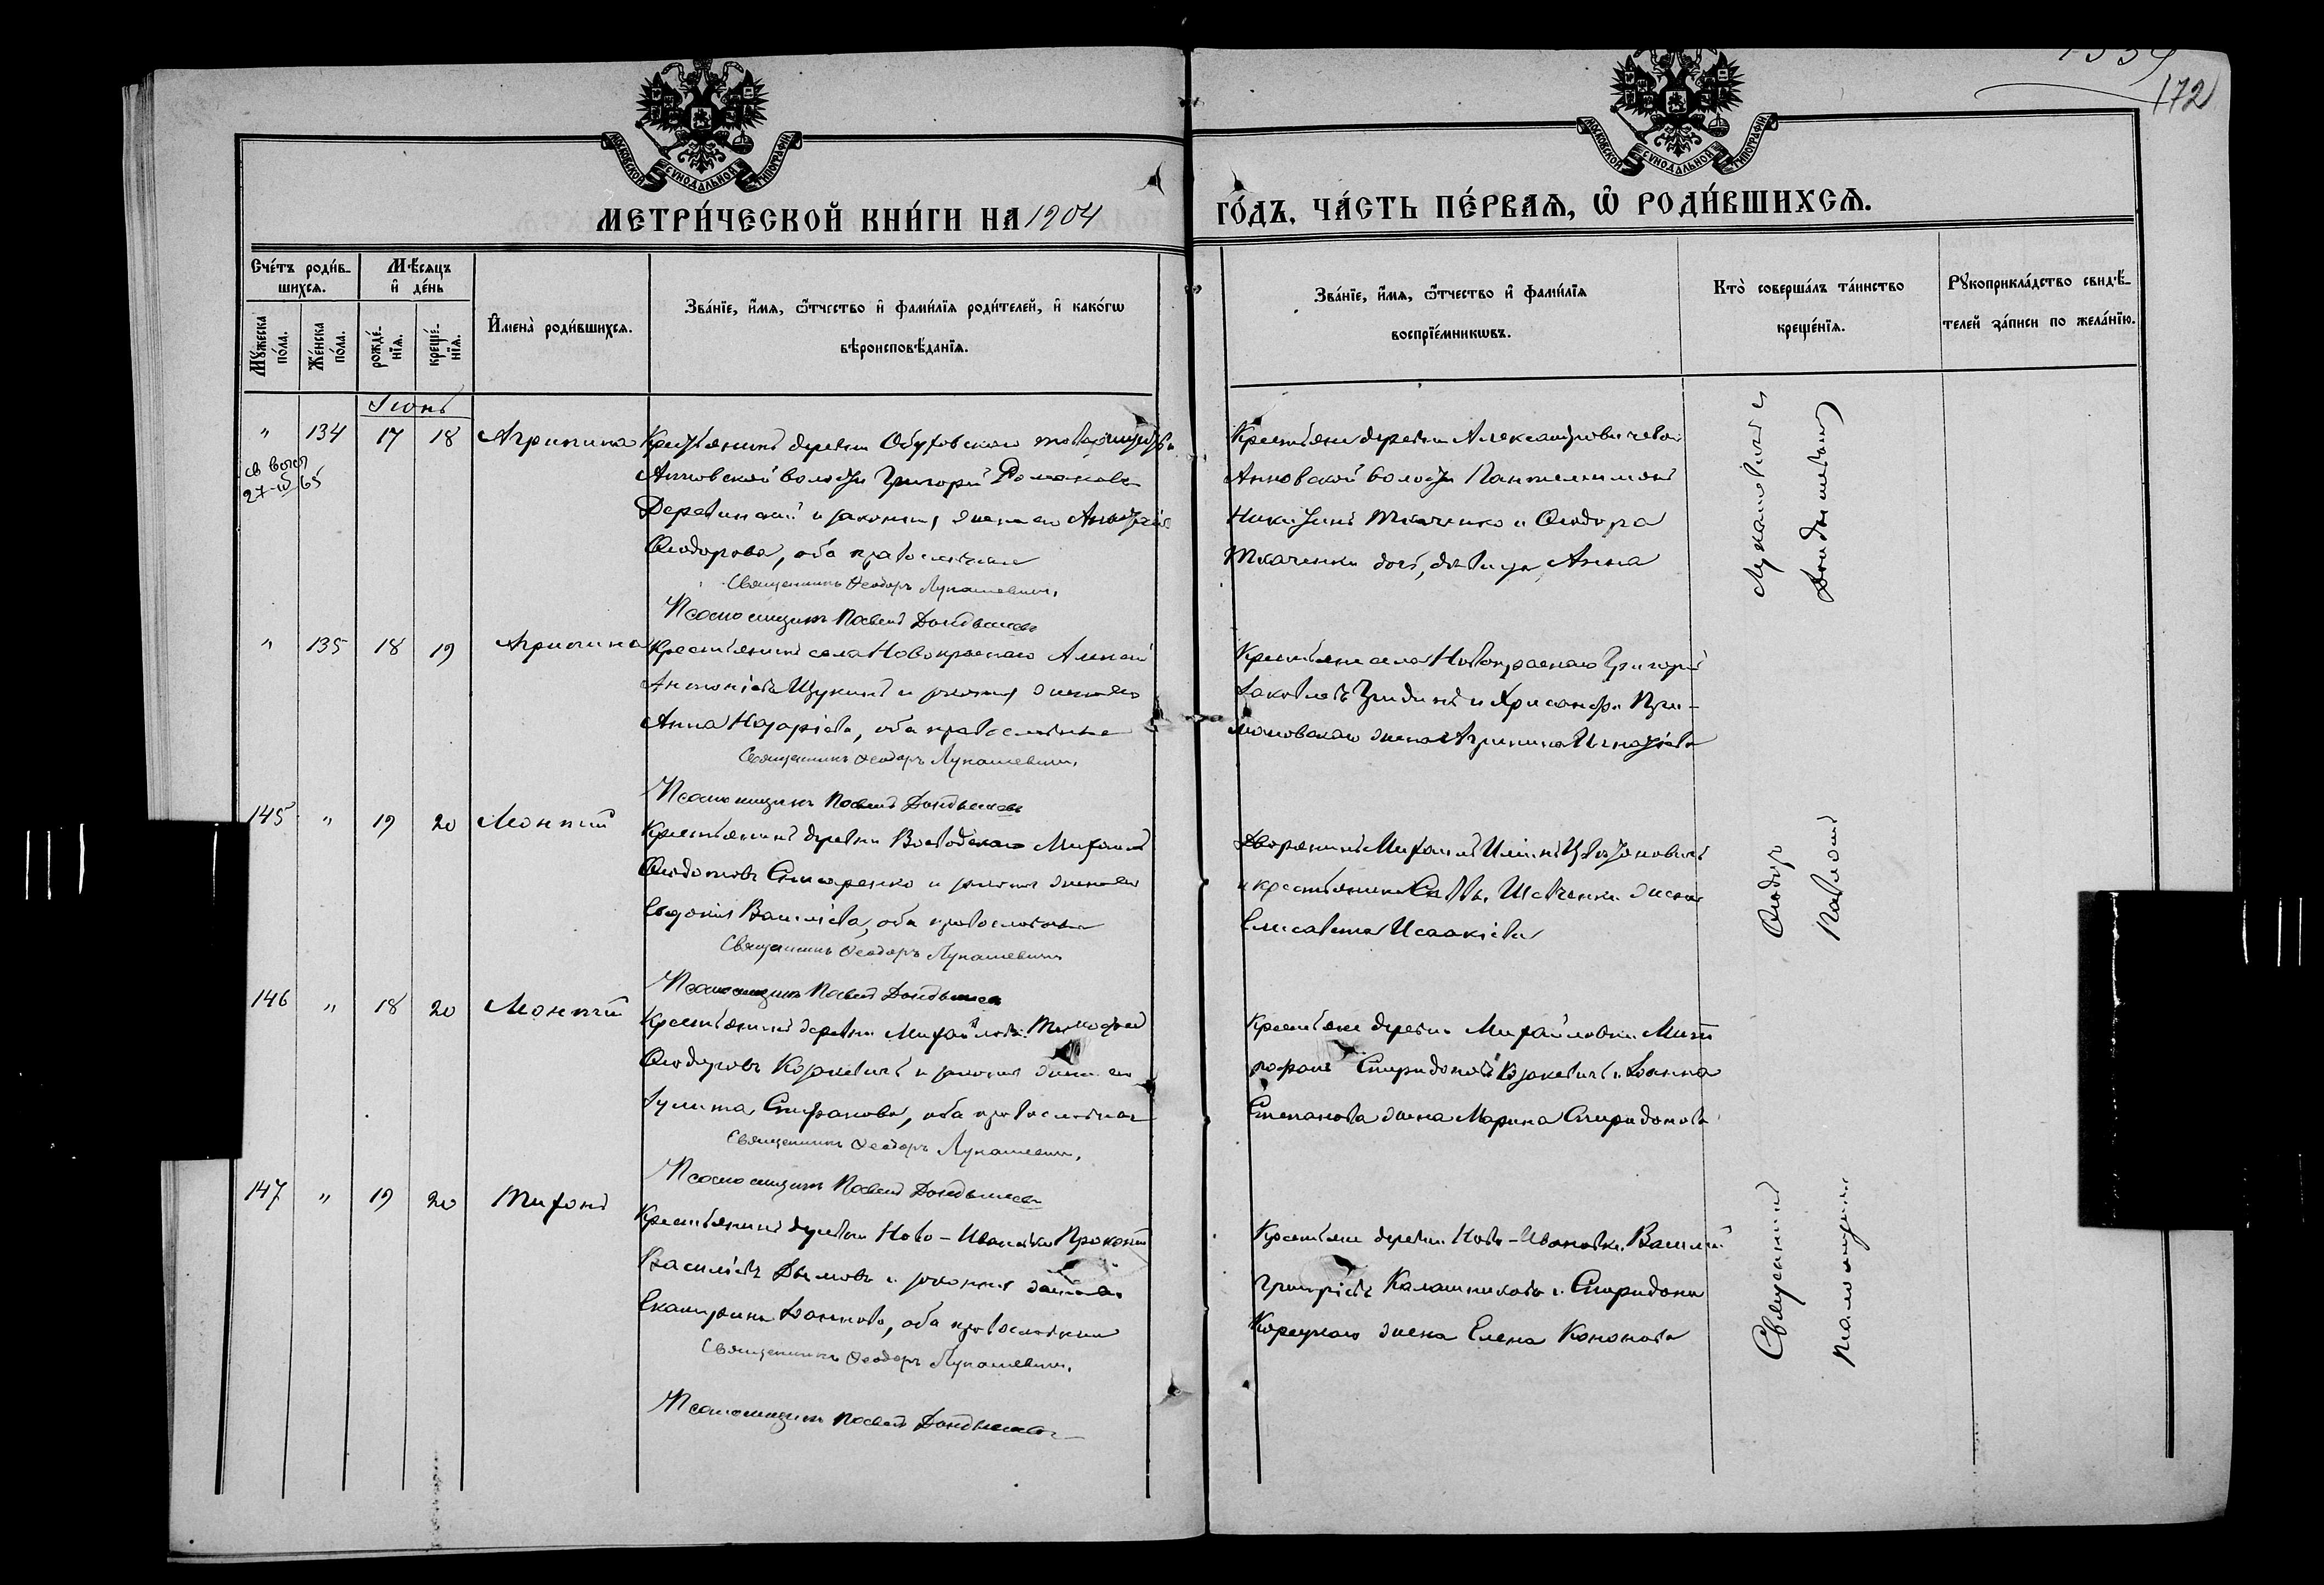 172
МОСКОВСКОЙ СУНОДАЛЬНОЙ ТИПОГРАФІИ
МОСКОВСКОЙ СУНОДАЛЬНОЙ ТИПОГРАФІИ
МЕТРИ́ЧЕСКОЙ КНИ́ГИ НА 1904
ГО́ДЪ, ЧА́СТЬ ПЕ́РВАѦ, Ѡ҆ РОДИ́ВШИХСѦ.
Сче́тъ роди́в-
шихсѧ.
Му́жеска по́ла.
Же́нска по́ла.
Мѣ́сѧцъ
и҆ де́нь
рожде́-
нїѧ.
креще́-
нїѧ.
И҆мена̀ роди́вшихсѧ.
Зва́нїе, и҆́мѧ, ѻ҆́тчество и҆ фами́лїѧ роди́телей, и҆ како́гѡ
вѣроисповѣ́данїѧ.
Зва́нїе, и҆́мѧ, ѻ҆́тчество и҆ фами́лїѧ
воспрїе́мникѡвъ.
Кто̀ соверша́лъ та́инство
креще́нїѧ.
Рꙋкоприкла́дство свидѣ́-
телей за́писи по жела́нїю.
Іюнь
" 134 17 18 Агрипина Крестьянинъ деревни Обуховскаго товарищества
Анновской волости Григорій Романовъ
Деревинскій и законная жена его Анастасія
Ѳеодорова, оба православные
Священникъ Ѳеодоръ Лукашевичъ.
Псаломщикъ Павелъ
Крестьяне деревни Александровичева
Анновской волости Пантелеимонъ
Никитинъ Ткаченко и Ѳеодора
Ткаченки дочь, дѣвица Анна
Лукашевичъ и
" 135 18 19 Агрипина Крестьянинъ села Новокраснаго Алексій
Антоніевъ Щукинъ и законная жена его
Анна Назаріева, оба православные
Священникъ Ѳеодоръ Лукашевичъ.
Псаломщикъ Павелъ
Крестьяне села Новокраснаго Григорій
Іаковлевъ Гридинъ и Хрисанфа
жена Агрипина Игнатіева
145 " 19 20 Леонтій Крестьянинъ деревни Воеводскаго Михаилъ
Ѳедотовъ и законная жена его
Евдокія Василіева, оба православные
Священникъ Ѳеодоръ Лукашевичъ
Псаломщикъ Павелъ
Дворянинъ Михаилъ Иліинъ
и крестьянина Саввы Шевченка жена
Елисавета Исаакіева
Ѳеодоръ
Павломъ
146 " 18 20 Леонтій Крестьянинъ деревни Михайловки Тимоѳей
Ѳеодоровъ и законная жена его
Іулита Стефанова, оба православные
Священникъ Ѳеодоръ Лукашевичъ.
Псаломщикъ Павелъ
Крестьяне деревни Михайловки Мит
рофанъ Спиридоновъ и Іоанна
Степанова жена Марина Спиридонова
147 " 19 20 Тихонъ Крестьянинъ деревни Ново-Ивановки Прокопій
Василіевъ Дымовъ и законная жена его
Екатерина Іоаннова, оба православные
Священникъ Ѳеодоръ Лукашевичъ.
Псаломщикъ Павелъ
Крестьяне деревни Ново-Ивановки Василій
Григоріевъ Калашниковъ и Спиридона
Корецкаго жена Елена Кононова
Священникъ
псаломщикъ